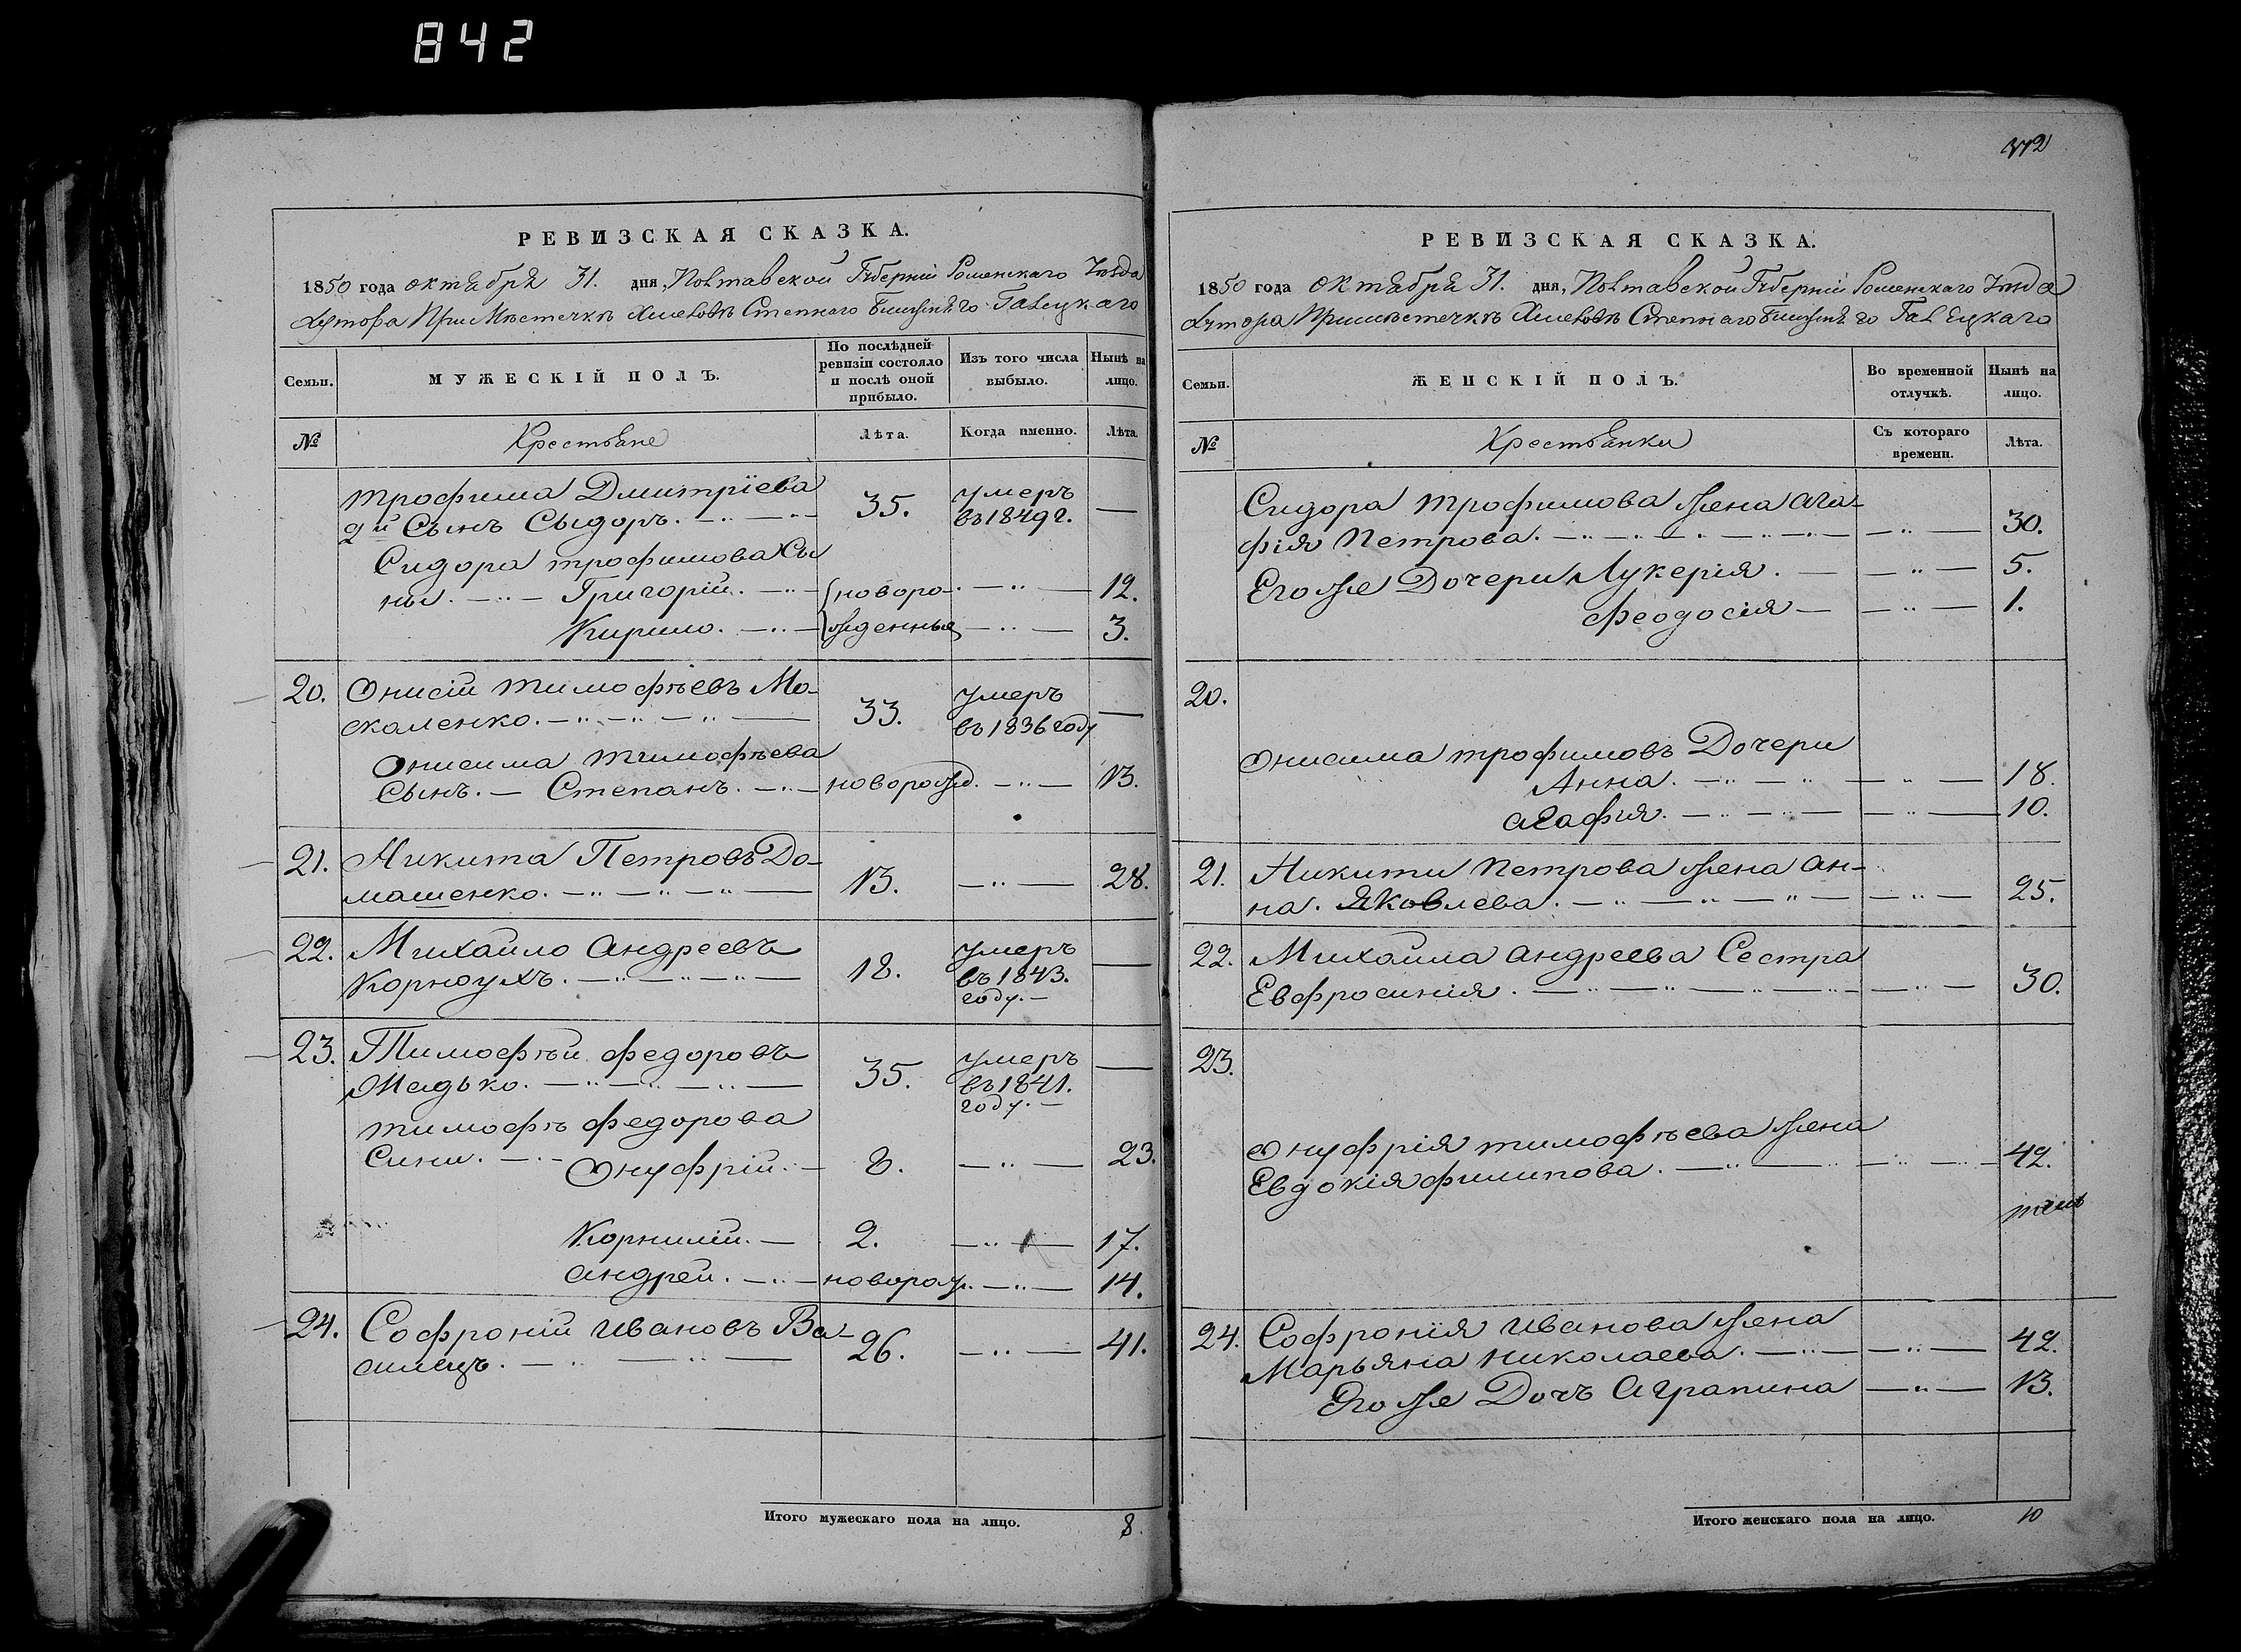 842
РЕВИЗСКАЯ СКАЗКА.
1850 года октября 31. дня, Полтавской Губерніи Роменскаго Уѣзда
Хутора При Мѣстечкѣ Хмеловѣ Степнаго Галецкаго
Семьи.
МУЖЕСКІЙ ПОЛЪ.
По послѣдней ревизіи состояло и послѣ оной прибыло.
Изъ того числа выбыло.
Нынѣ на лицо.
№
Крестьяне
Лѣта.
Когда именно.
Лѣта.
Трофима Дмитріева умеръ
2й Сынъ Сыдоръ. 35. въ 1849 г. —
Сидора трофимова Сы
ны. Григорій. новоро- 12.
Кирило. жденные 3.
20. Онисiй тимофѣевъ Мо- умеръ
скаленко. 33. въ 1836 году —
Онисима тимофѣева
Сынъ. — Степанъ. новорожд. 13.
21. Никита Петровъ До-
машенко. 13. 28.
22. Михайло андреевъ умеръ
Корноухъ. 18. въ 1843. —
году. —
23. Тимофѣй федоровъ умеръ
Медько. 35. въ 1841. —
году. —
тимофѣ федорова
Сини. Онуфрій. 8. 23.
Корнилій. — 2. 17.
андрей. новорож. 14.
24. Софроній ивановъ Ва-
силецъ. 26. 41.
Итого мужескаго пола на лицо. 8.
372
РЕВИЗСКАЯ СКАЗКА.
1850 года октября 31. дня, Полтавской Губерніи Роменскаго Уѣзда
Хутора Примѣстечкѣ Хмеловѣ Степнаго Галецкаго
Семьи.
ЖЕНСКІЙ ПОЛЪ.
Во временной отлучкѣ.
Нынѣ на лицо.
№
Крестьянки
Съ котораго времени.
Лѣта.
Сидора трофимова жена ага-
фія Петрова. 30.
Его же Дочери Лукерія. 5.
феодосія — 1.
20.
Онисима трофимовъ Дочери
Анна. 18.
агафия. 10.
21. Никити Петрова жена ан-
на. Яковлева. 25.
22. Михайла андреева Сестра
Евфросинія. 30.
23.
Онуфрія тимофѣева жена
Евдокія филипова. 42.
24. Софронія иванова жена
Марьяна николаева. 42.
Его же Дочъ аграпина 13.
Итого женскаго пола на лицо. 10